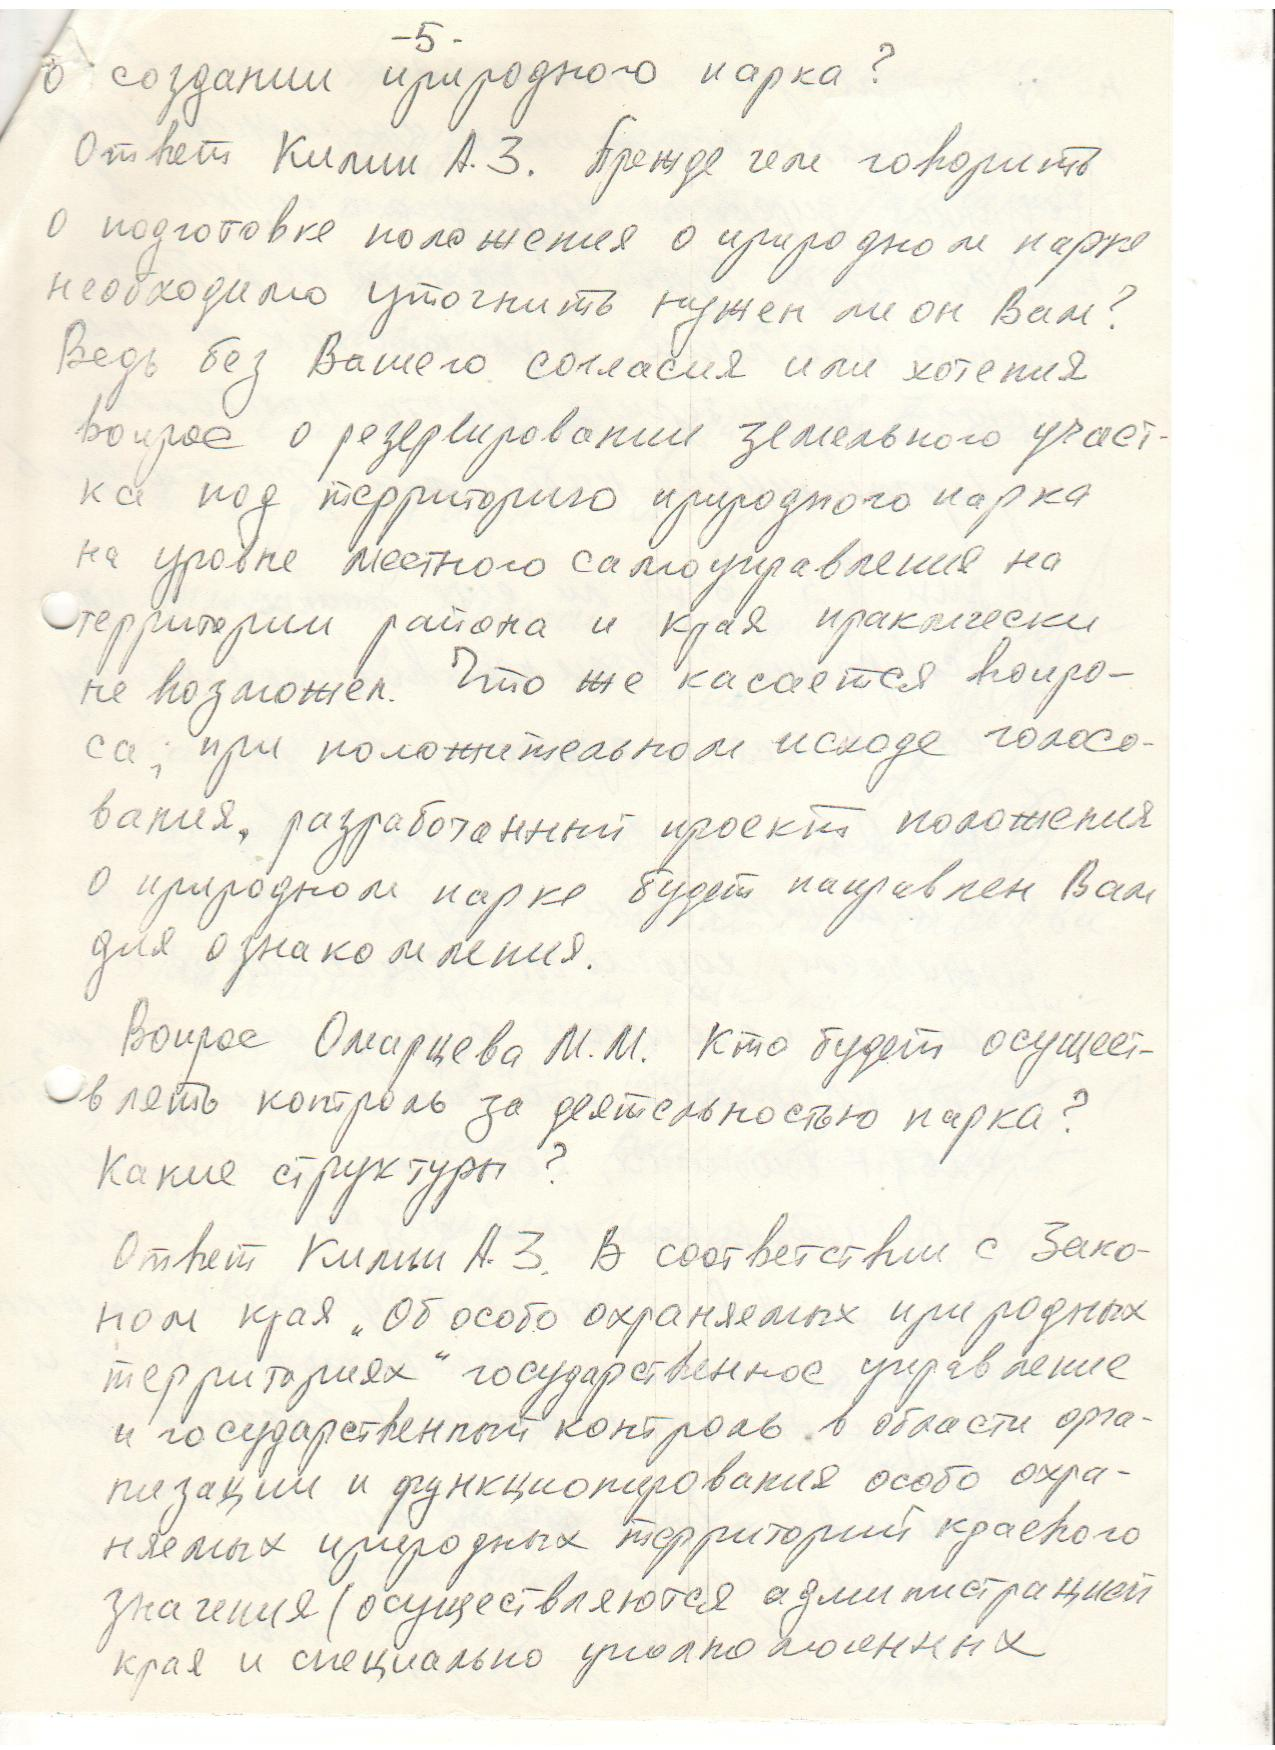 -5-
о создании природного парка?
Ответ Килин А.З. Прежде чем говорить
о подготовке положения о природном парке
необходимо уточнить нужен ли он Вам?
Ведь без Вашего согласия или хотения
вопрос о резервировании земельного участ-
ка под территорию природного парка
на уровне местного самоуправления на
территории района и края практически
не возможен. Что же касается вопро-
са, при положительном исходе голосо-
вания, разработанный проект положения
о природном парке будет направлен Вам
для ознакомления.
Вопрос Омарцева М.М. Кто будет осущест-
влять контроль за деятельностью парка?
Какие структуры?
Ответ Килин А.З. В соответствии с Зако-
ном края „Об особо охраняемых природных
территориях“ государственное управление
и государственный контроль в области орга-
низации и функционирования особо охра-
няемых природных территорий краевого
значения (осуществляются администрацией
края и специально уполномоченных